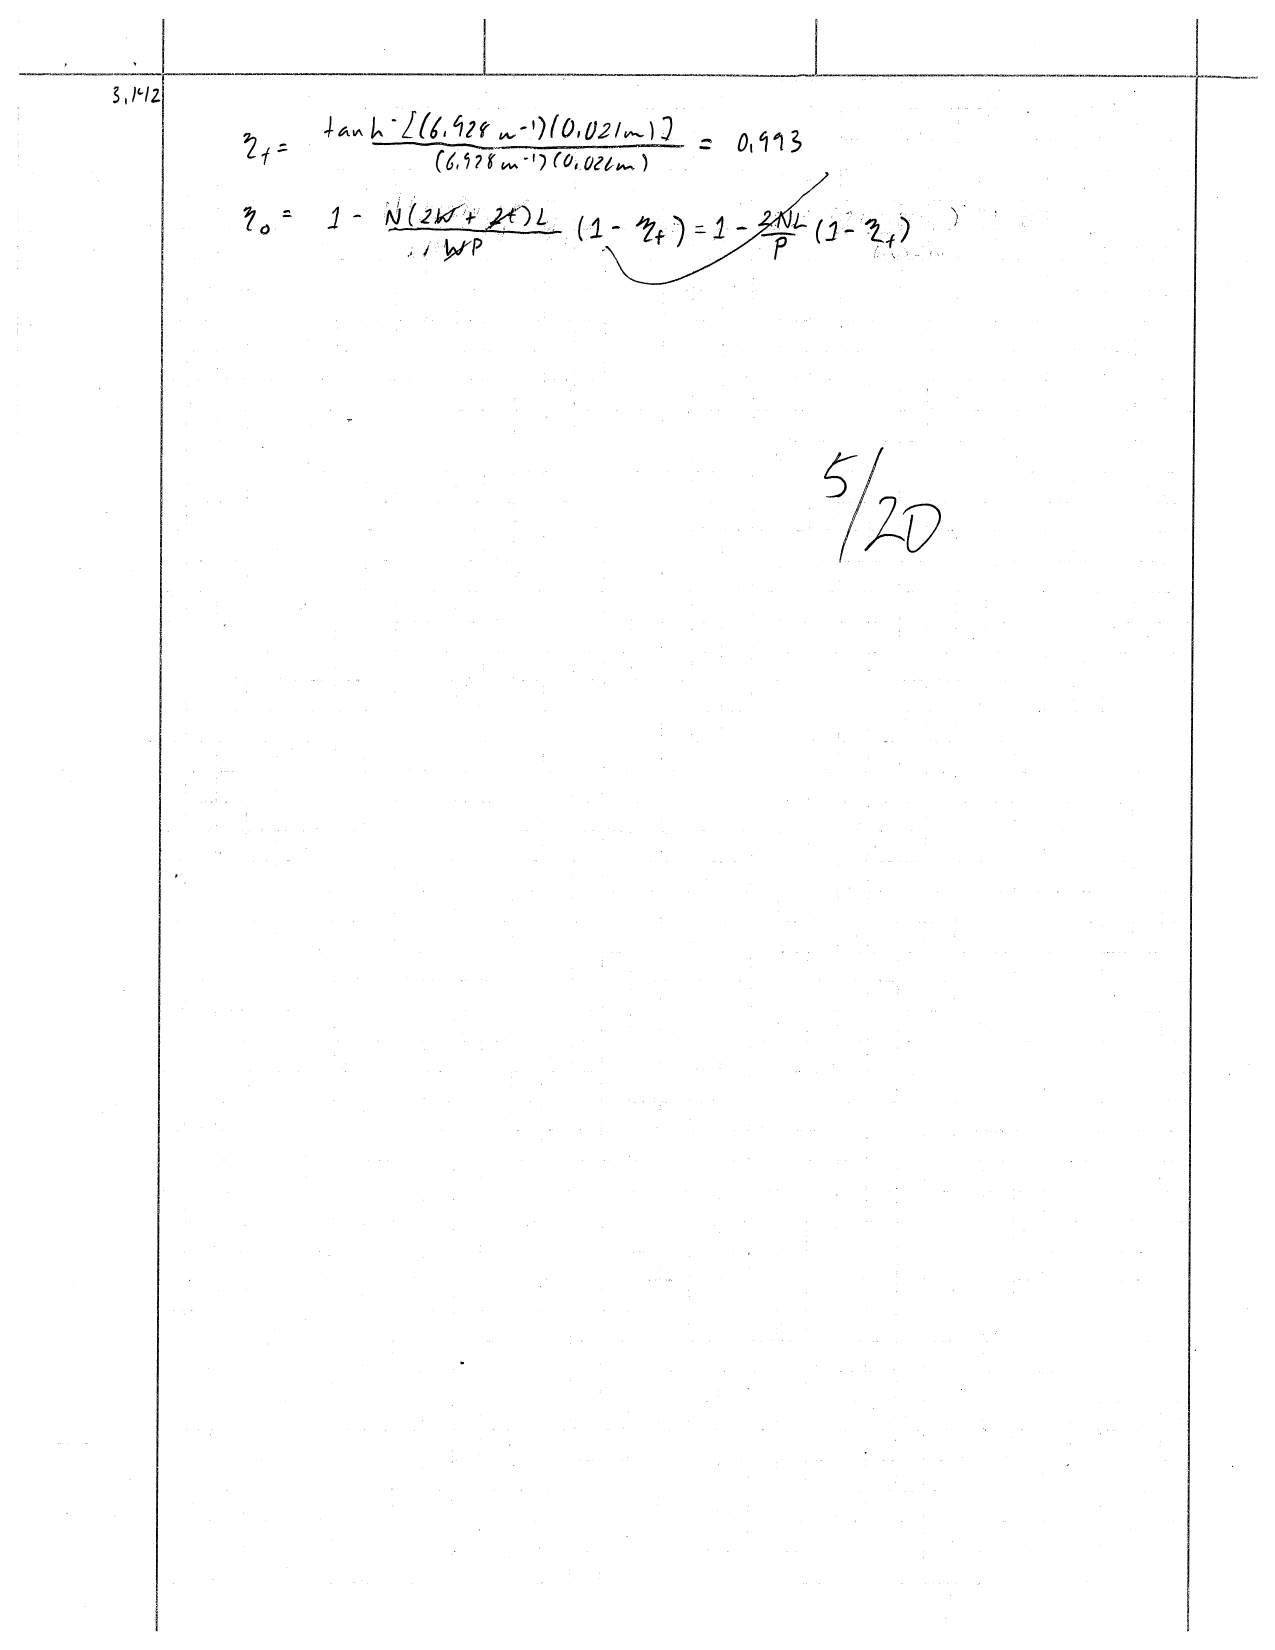 3.142
η_f = tanh [(6.928 m⁻¹)(0.021m)] / (6.928 m⁻¹)(0.021m) = 0.993
η_o = 1 - N(2W + 2t)L / WP (1 - η_f) = 1 - 2NL / P (1 - η_f)
5/20